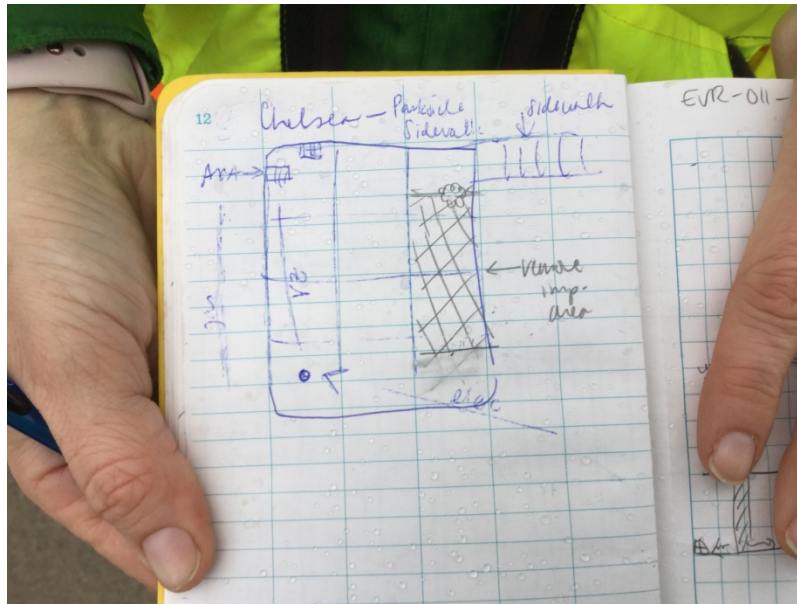 12
Chelsea - Parkside
Sidewalk
sidewalk
EVR-011-
remove
imp.
area
elec